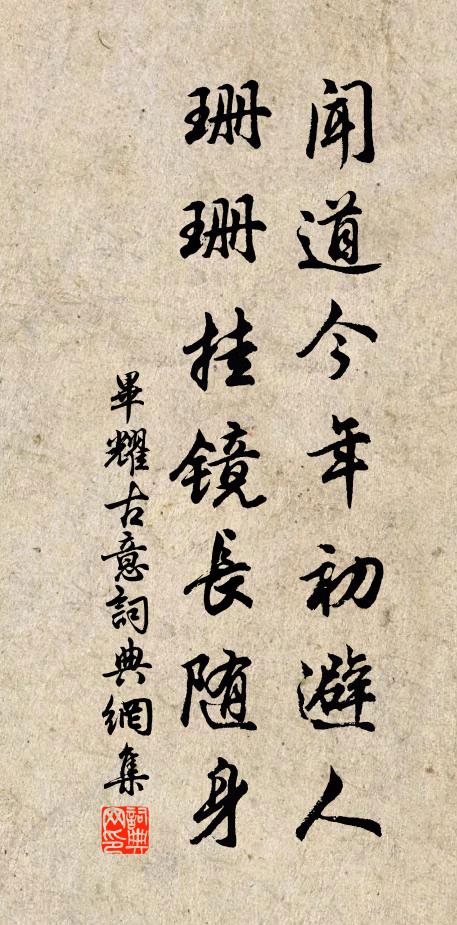 闻道今年初避人
珊珊挂镜長随身
畢耀古意詞典網集
詞典网印